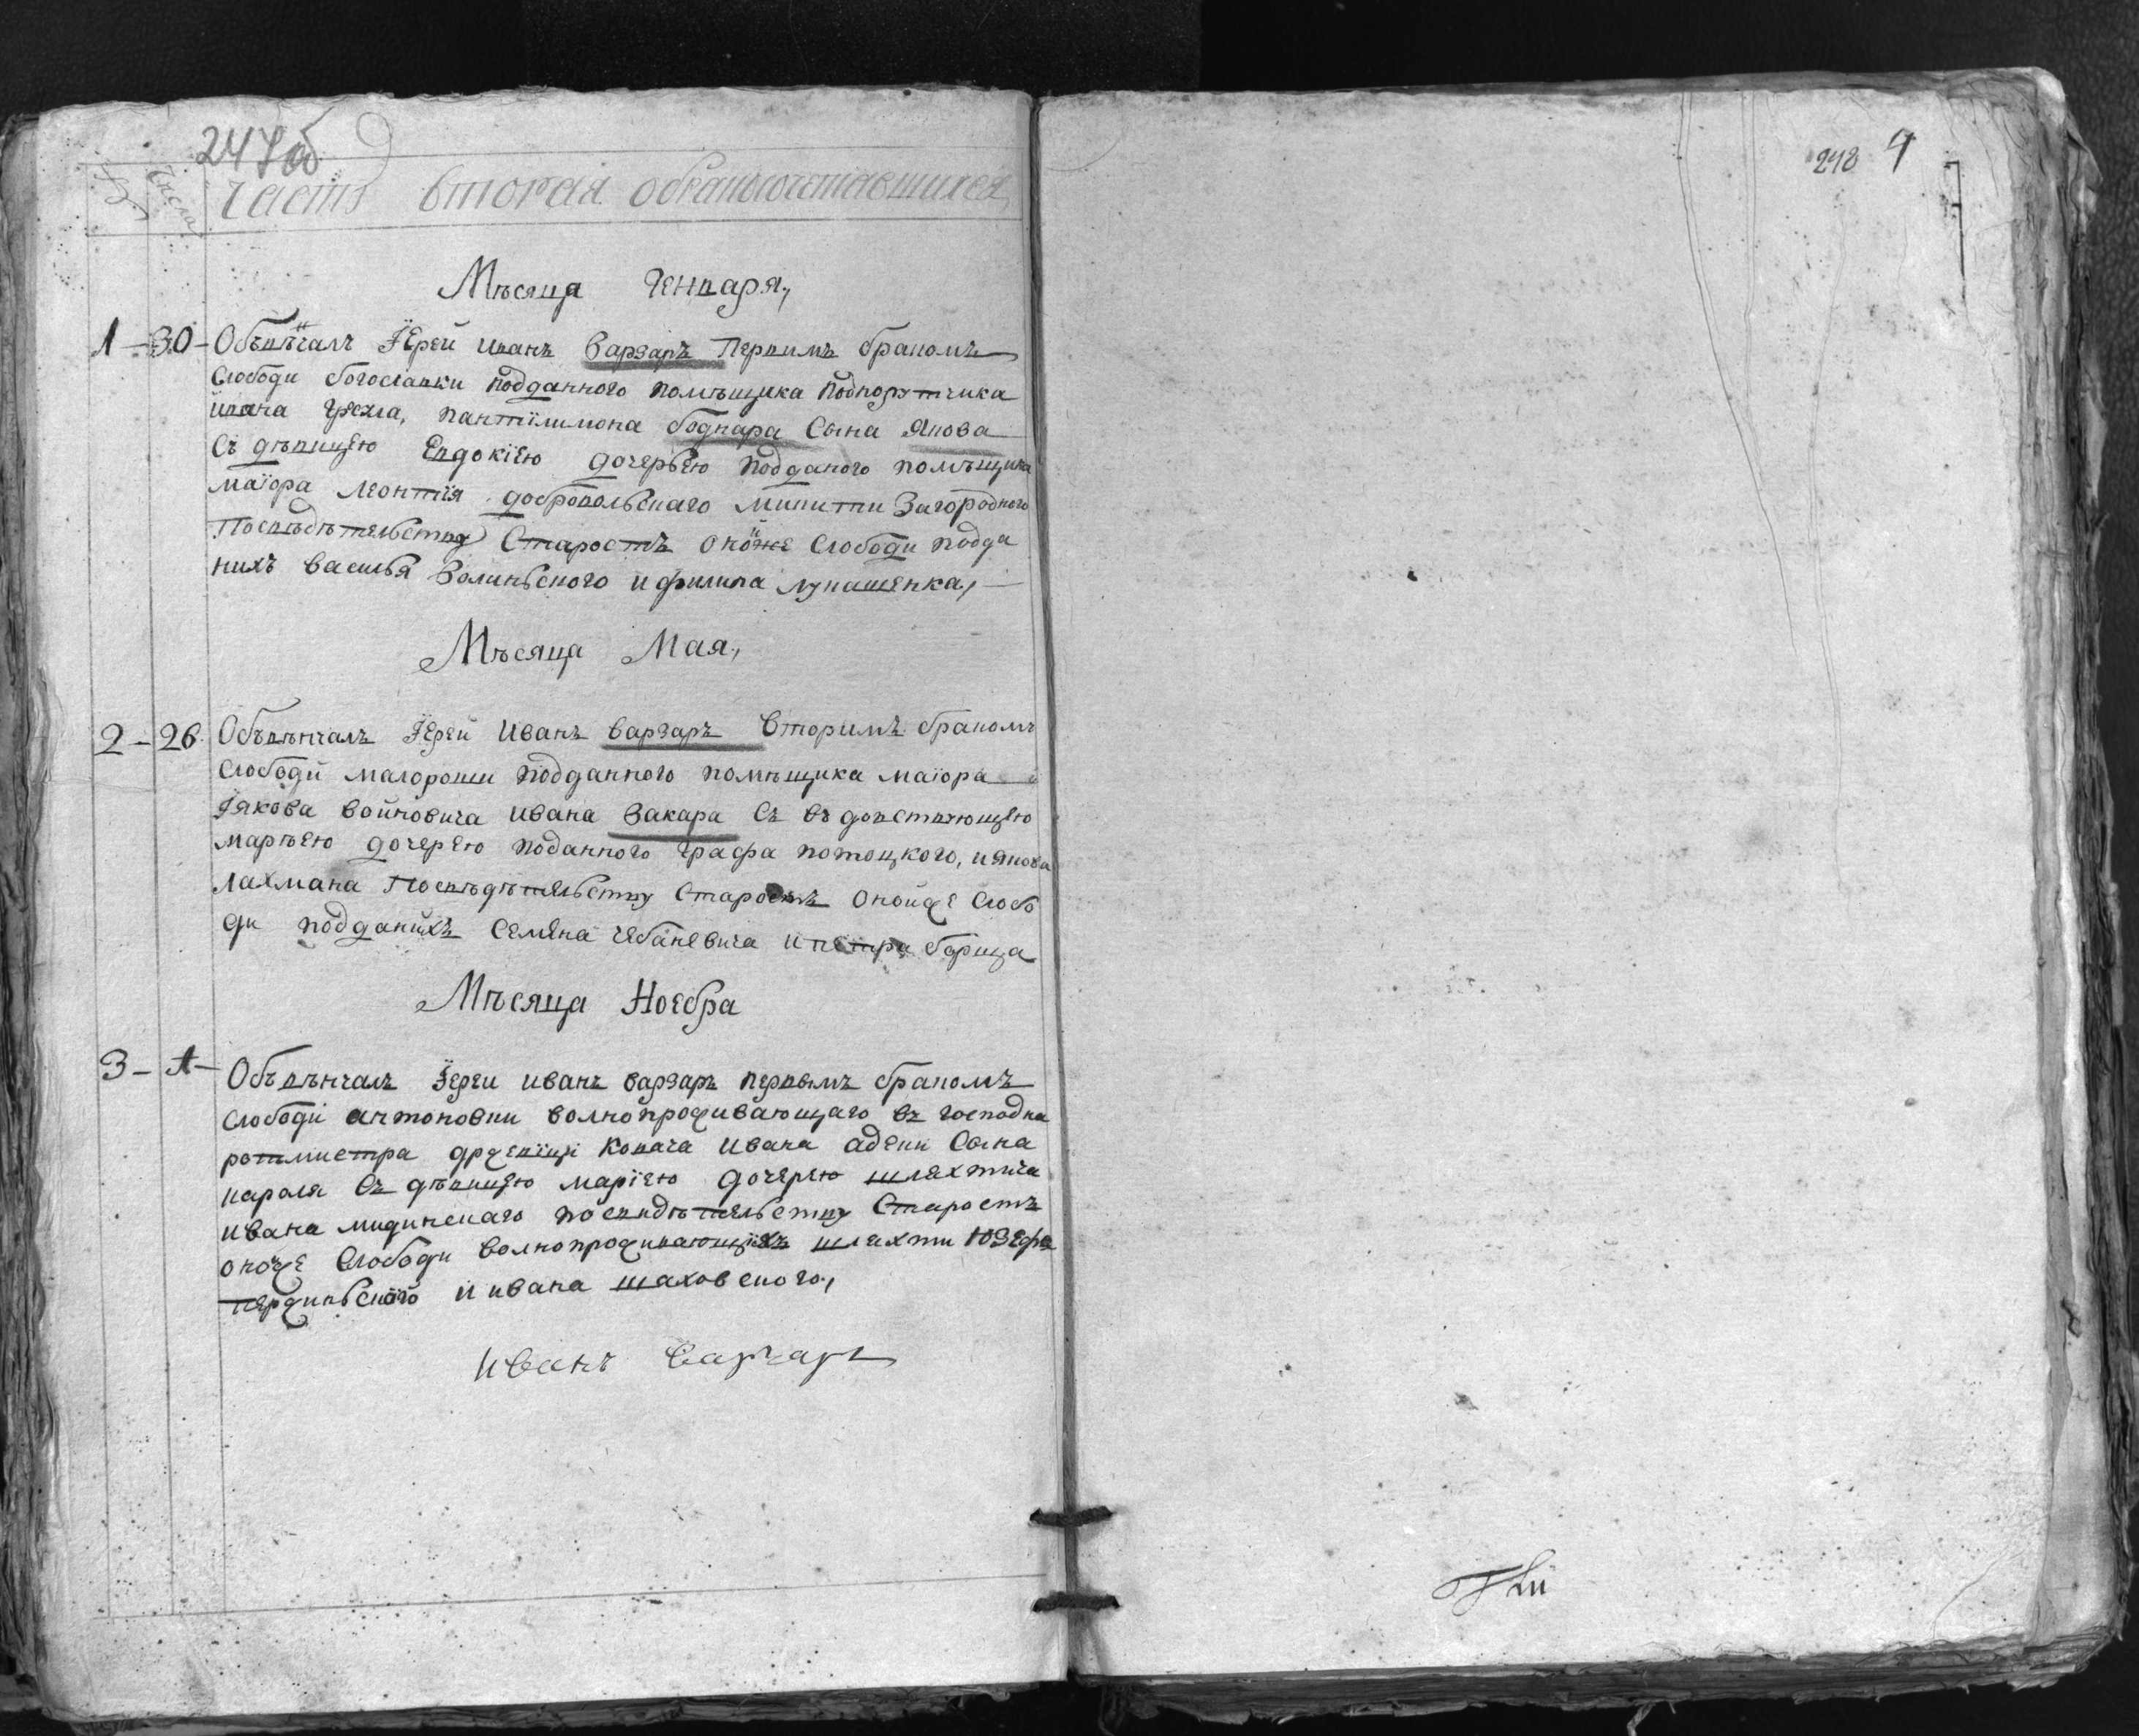 247об
№ Числа Часть вторая о бракосочетавшихся
Мѣсяца Генваря,
1 - 30 - Объвѣнчалъ Їерей Иванъ Варзаръ Первимъ бракомъ
Слободи богославки подданного помѣщика подпорутчика
ивана грекла, пантїлимона боднара Сына Якова
Съ дѣвицею Евдокїею дочерьею подданого помѣщика
маїора леонтїя добровольскаго микитти Загородного
Посвѣдѣтельству Старостъ онойже Слободи подда
нихъ василья Волиньского и филипа лукашенка,
Мѣсяца Мая,
2 - 26 Объвѣнчалъ Їерей Иванъ варзаръ Вторимъ бракомъ
Слободи малороши подданного помѣщика маїора
Їякова войновича ивана Закара Съ въдовствующею
марѣею дочерею поданного графа потоцкого, иякова
лахмана Посвѣдѣтельству Старостъ онойже Слобо
ди подданихъ Семена чебаневича и петра борща
Мѣсяца Ноебра
3 - 1 - Объвѣнчалъ Їереи иванъ варзаръ первымъ бракомъ
Слободи антоновки волнопроживающаго въ господна
ротмистра Ковача ивана Сына
кароля Съ дѣвицею марїею дочерею шляхтича
ивана мидинскаго посвидѣтельству Старостъ
оноже Слободи волнопроживающїхъ шляхти юзефа
и ивана шаховского,
иванъ Варзаръ
248 4